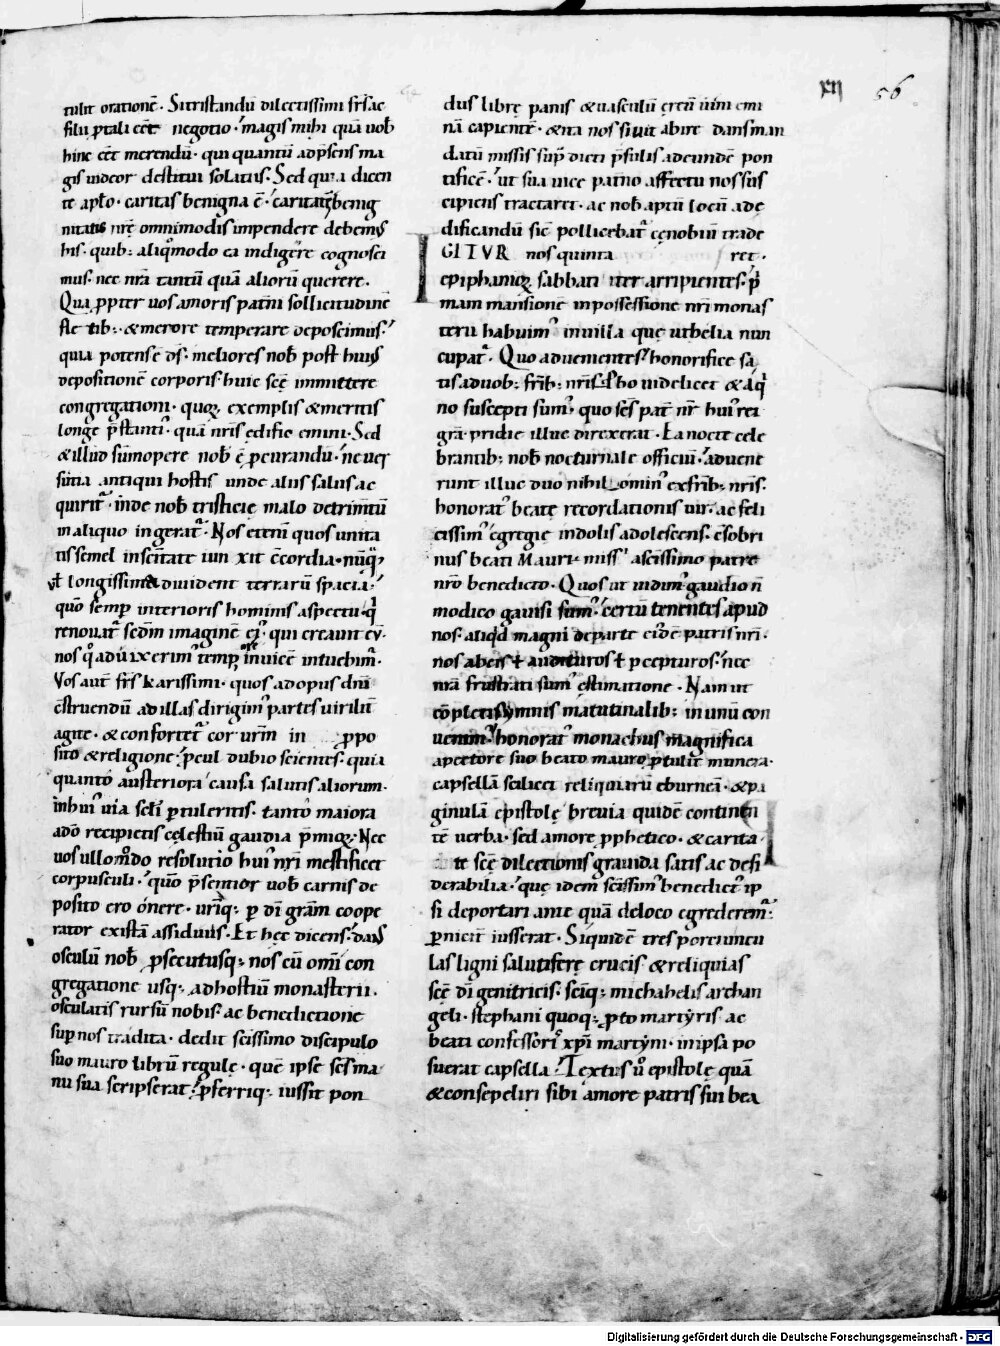 xII 56
tulit orationē. Si tristandū dilectissimi frs̄ ac
filii ꝑ tali eēt negotio. magis mihi quā uob̄
hinc eēt merendū. qui quantū ad p̄sens ma
gis uideor destitui solatiis. Sed quia dicen
te apl̄o. caritas benigna ē. caritatis benig
nitatis nr̄e omnimodis impendere debem᾽
his. quib; aliqͦmodo ea indigere cognosci
mus. nec nr̄a tantū quā aliorū querere.
Qua ꝓpter uos amoris pat̄ni sollicitudinē
fletib; & merore temperare deposcimus.
quia potens ē ds̄. meliores nob̄ post hui᾽
depositionē corporis. huic scē immittere
congregationi. quoꝝ exemplis & meritis
longe p̄stanti᾽ quā nr̄is ędificemini. Sed
& illud sūmopere nob̄ ē ꝓcurandū. ne uer
sutia antiqui hostis unde aliis salus ac
quirit᾽. inde nob̄ tristicie malo detrim̄tū
in aliquo ingerat᾽. Nos etenī quos unita
tis semel in scītate iunxit cc̄ordia. nūqͣ᾽
ut longissima diuident terrarū spacia.
quō semꝑ interioris hominis aspectu. qͥ
renouat᾽ scdm̄ imaginē ei᾽ qui creauit eū.
nos qͦadūixerim᾽ temp᾽ inuicē intuebim᾽.
Vos aut̄ frs̄ karissimi. quos ad opus dn̄i
cc̄struendū ad illas dirigim᾽ partes uirilit̄
agite. & confortet᾽ cor ur̄m in ꝓpo
sito & religione. ꝓcul dubio scientes. quia
quanto austeriora causa salutis aliorum.
in hui᾽ uia scl̄i ꝑtuleritis. tanto maiora
a dō recipietis cęlestiū gaudia p̄mioꝝ. Nec
uos ullomͦdo resolutio hui᾽ nr̄i mestificet
corpusculi. quō p̄sentior uob̄ carnis de
posito ero onere. ur̄iq; ꝑ dī grām coope
rator existā assiduus. Et hęc dicens. dans
osculū nob̄ ꝓsecutusq; nos cū om̄i con
gregatione usq; ad hostiū monasterii.
osculatis rursū nobis. ac benedictione
suꝑ nos tradita. dedit scīssimo discipulo
suo mauro librū regulę. quē ipse scs̄ ma
nu sua scripserat. p̄ferriq; iussit pon
dus librę panis & uasculū ęreū uini emi
nā capientē. & ita nos siuit abire dans man
datū missis supͣdicti p̄sulis ad eundē pon
tificē. ut sua uice pat̄no affectu nos sus
cipiens tractaret. ac nob̄ aptū locū adę
dificandū sic pollicebat᾽ cęnobiū trade
IGITVR nos quinta ret.
epiphanioꝝ sabbati iter arripientes. pͥ
mam mansionē in possessione nr̄i monas
terii habuim᾽ in uilla que utbelia nun
cupat᾽. Quo aduenientes honorifice sa
tis a duob; frīb; nr̄is. ꝓbo uidelicet & aqͥ
no suscepti sum᾽ quos scs̄ pat᾽ nr̄ hui᾽ rei
grā. pridie illuc direxerat. Ea nocte cele
brantib; nob̄ nocturnale officiū. aduene
runt illuc duo nihilomin᾽ ex frīb; nr̄is.
honorat᾽ beate recordationis uir. ac feli
cissim᾽ egregię indolis adolescens. cc̄sobri
nus beati Mauri. miss᾽ a scīssimo patre
nr̄o benedicto. Quos ut uidim᾽ gaudio ñ
modico gauisi sum᾽. certū tenentes apud
nos. aliqͥd magni de parte ei᾽dē patris nr̄i.
nos ab eis ł audituros ł pcepturos. nec
nr̄a frustrati sum᾽ ęstimatione. Nam ut
cō̄pletis ymnis matutinalib; in unū con
uenim᾽. honorat᾽ monachus magnifica
a pectore suo beato mauro ꝓtulit munera.
capsellā scilicet reliquiarū eburneā. & pa
ginulā epistolę breuia quidē continen
tē uerba. sed amore ꝓphetico. & carita
te scē dilectionis grauida satis ac desi
derabilia. quę idem scīssim᾽ benedict᾽ ip
si deportari ante quā de loco egrederem᾽.
ꝑniciter iusserat. Siquidē tres porciuncu
las ligni salutiferę crucis. & reliquias
scē dī genitricis. scīq; michahelis archan
geli. stephani quoq; ꝓto martyris ac
beati confessoris xp̄i martyni. in ipsa po
suerat capsella. Textus u᾽o epistolę quā
& consepeliri sibi amore patris sui bea
Digitalisierung gefördert durch die Deutsche Forschungsgemeinschaft - DFG